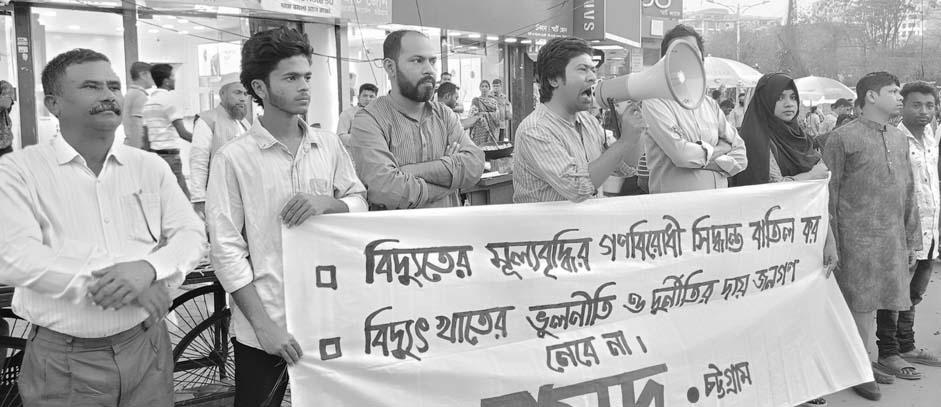 SAMS
বিদ্যুতের মূল্যবৃদ্ধির গণবিরোধী সিদ্ধান্ত বাতিল কর
বিদ্যুৎ খাতের ভুলনীতি ও দুর্নীতির দায় জনগণ
নেবে না।
• চট্টগ্রাম